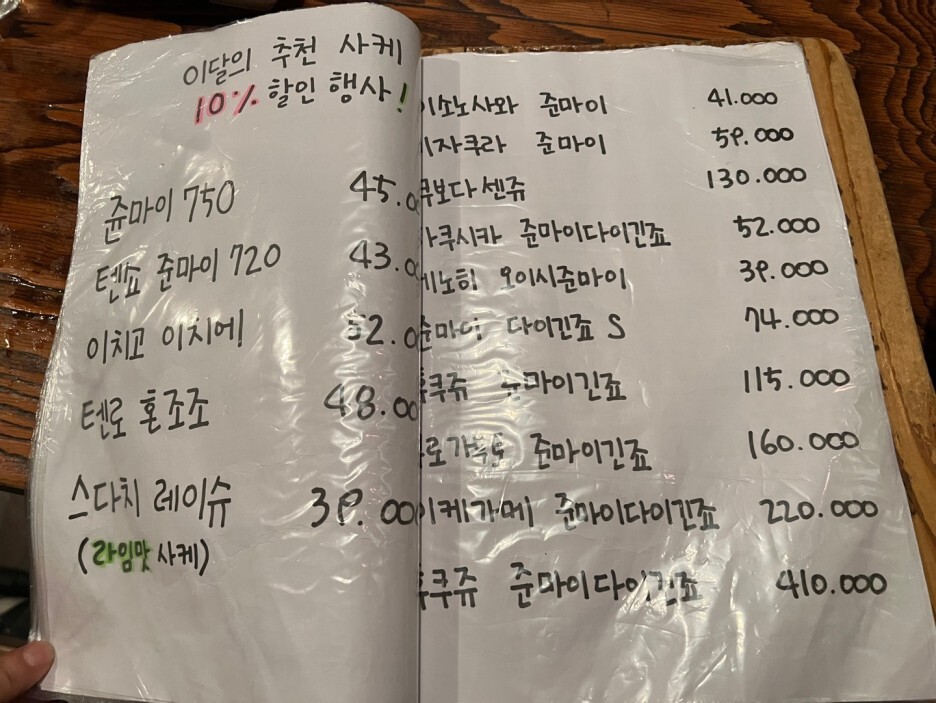 이달의 추천 사케
10% 할인 행사!
쥰마이 750 45.0
텐쇼 쥰마이 720 43.0
이치고 이치에 52.0
텐로 혼죠조 48.00
스다치 레이슈 39.000
(라임맛 사케)
이소노사와 쥰마이 41.000
이자쿠라 쥰마이 59.000
쿠보다 센쥬 130.000
쿠시카 쥰마이다이긴죠 52.000
노히 오이시쥰마이 39.000
쥰마이 다이긴죠 S 74.000
쿠쥬 쥰마이긴죠 115.000
쥰마이긴죠 160.000
이케가메 쥰마이다이긴죠 220.000
쿠쥬 쥰마이다이긴죠 410.000